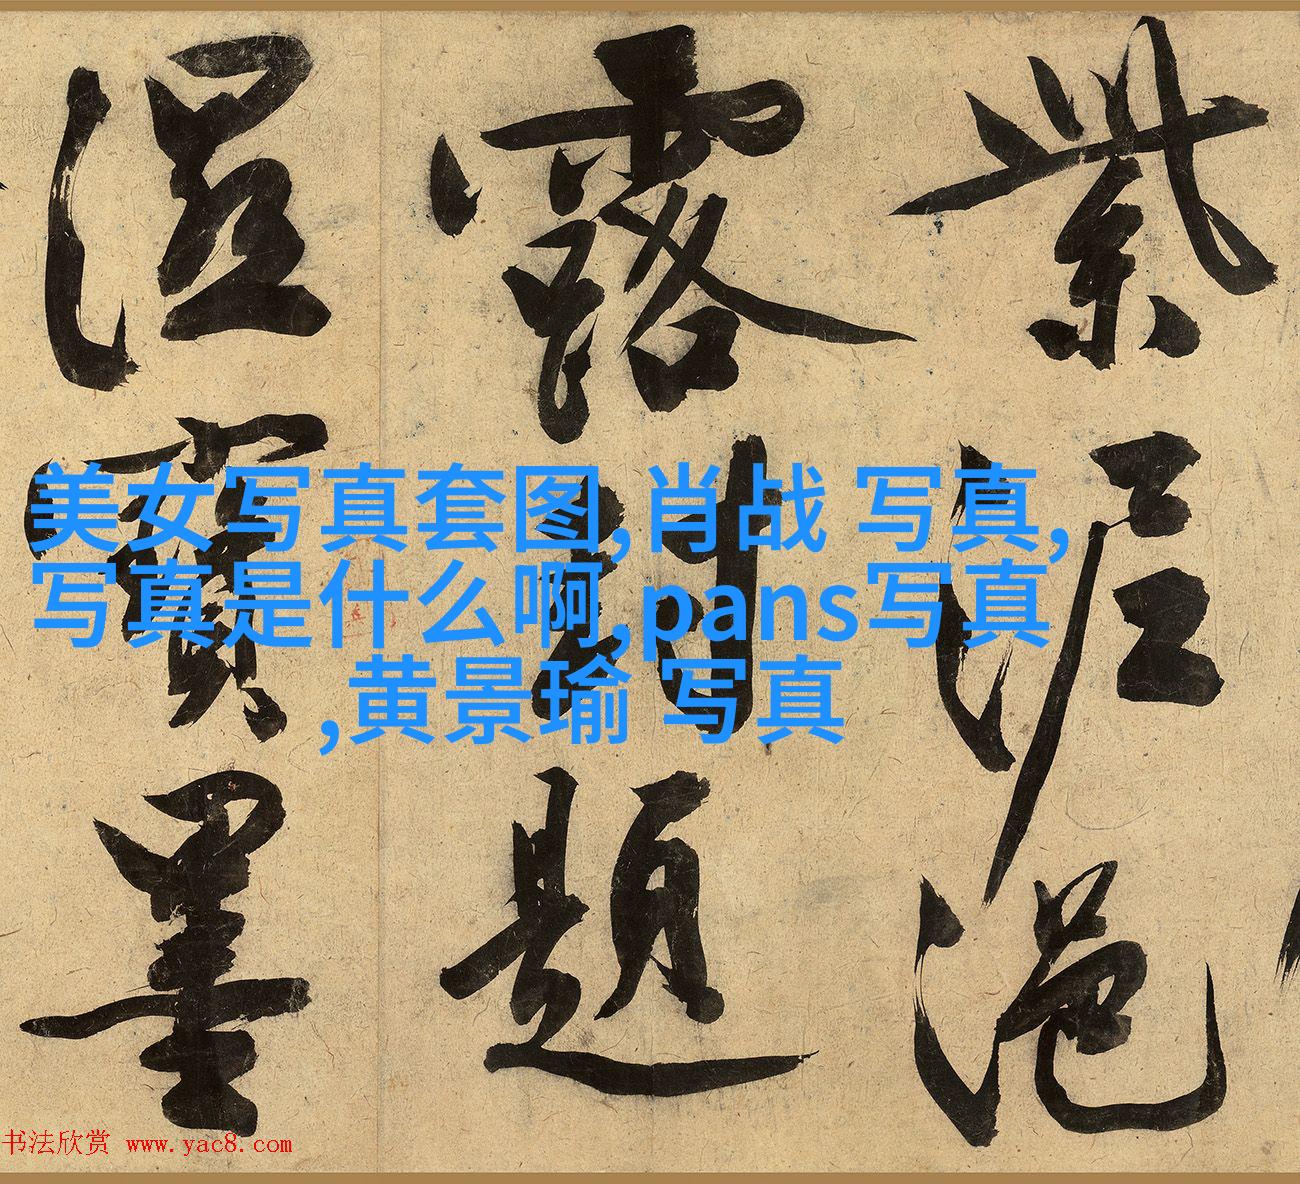 紫泥浥
露封題
溼寶墨
美女写真套图,肖战 写真,
写真是什么啊,pans写真
,黄景瑜 写真
书法欣赏 www.yac8.com